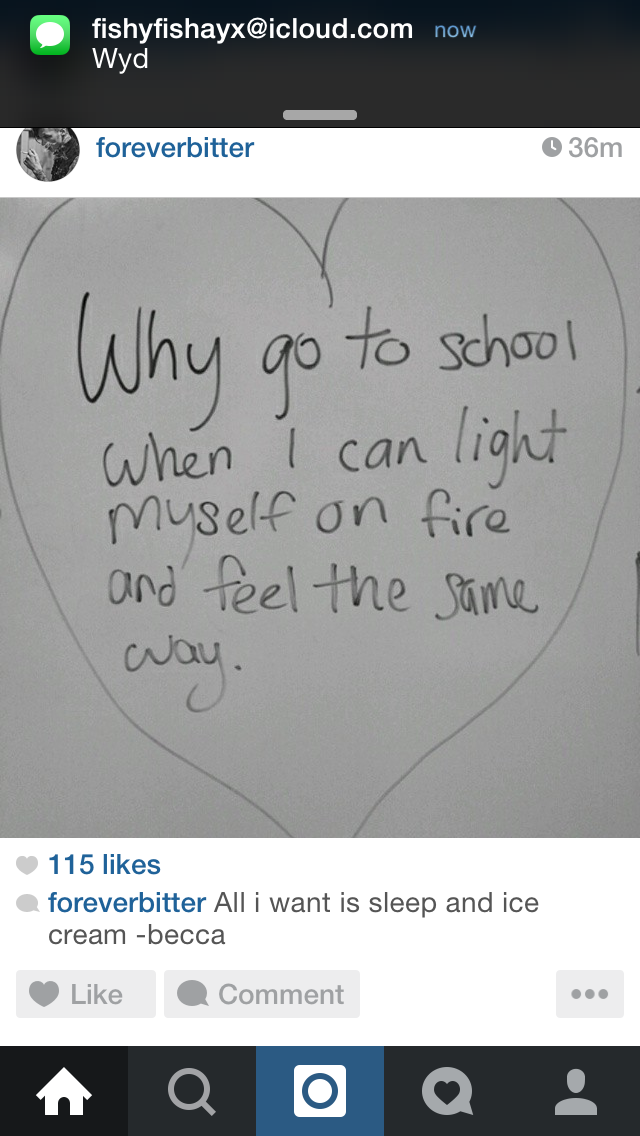 fishyfishayx@icloud.com now
Wyd
foreverbitter 36m
Why go to school
when I can light
myself on fire
and feel the same
way.
115 likes
foreverbitter All i want is sleep and ice
cream -becca
Like Comment